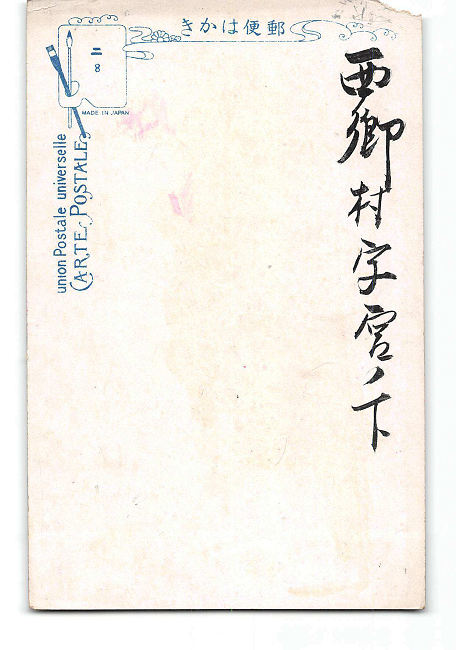 きかは便郵
二
8
MADE IN JAPAN
union Postale universelle
CARTE POSTALE
西郷村字宮ノ下